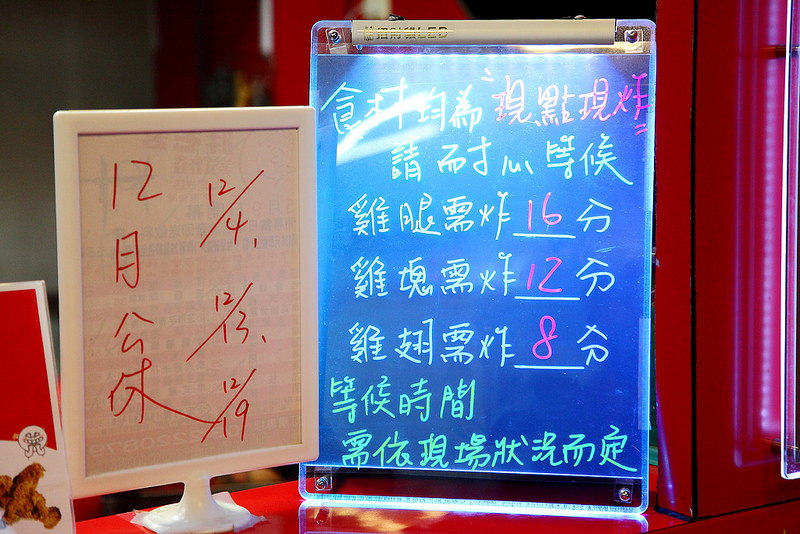 12月公休
12/4、
12/13、
12/19
招財貓LED
食材均為"現點現炸"
請耐心等候
雞腿需炸 16 分
雞塊需炸 12 分
雞翅需炸 8 分
等候時間
需依現場狀況而定